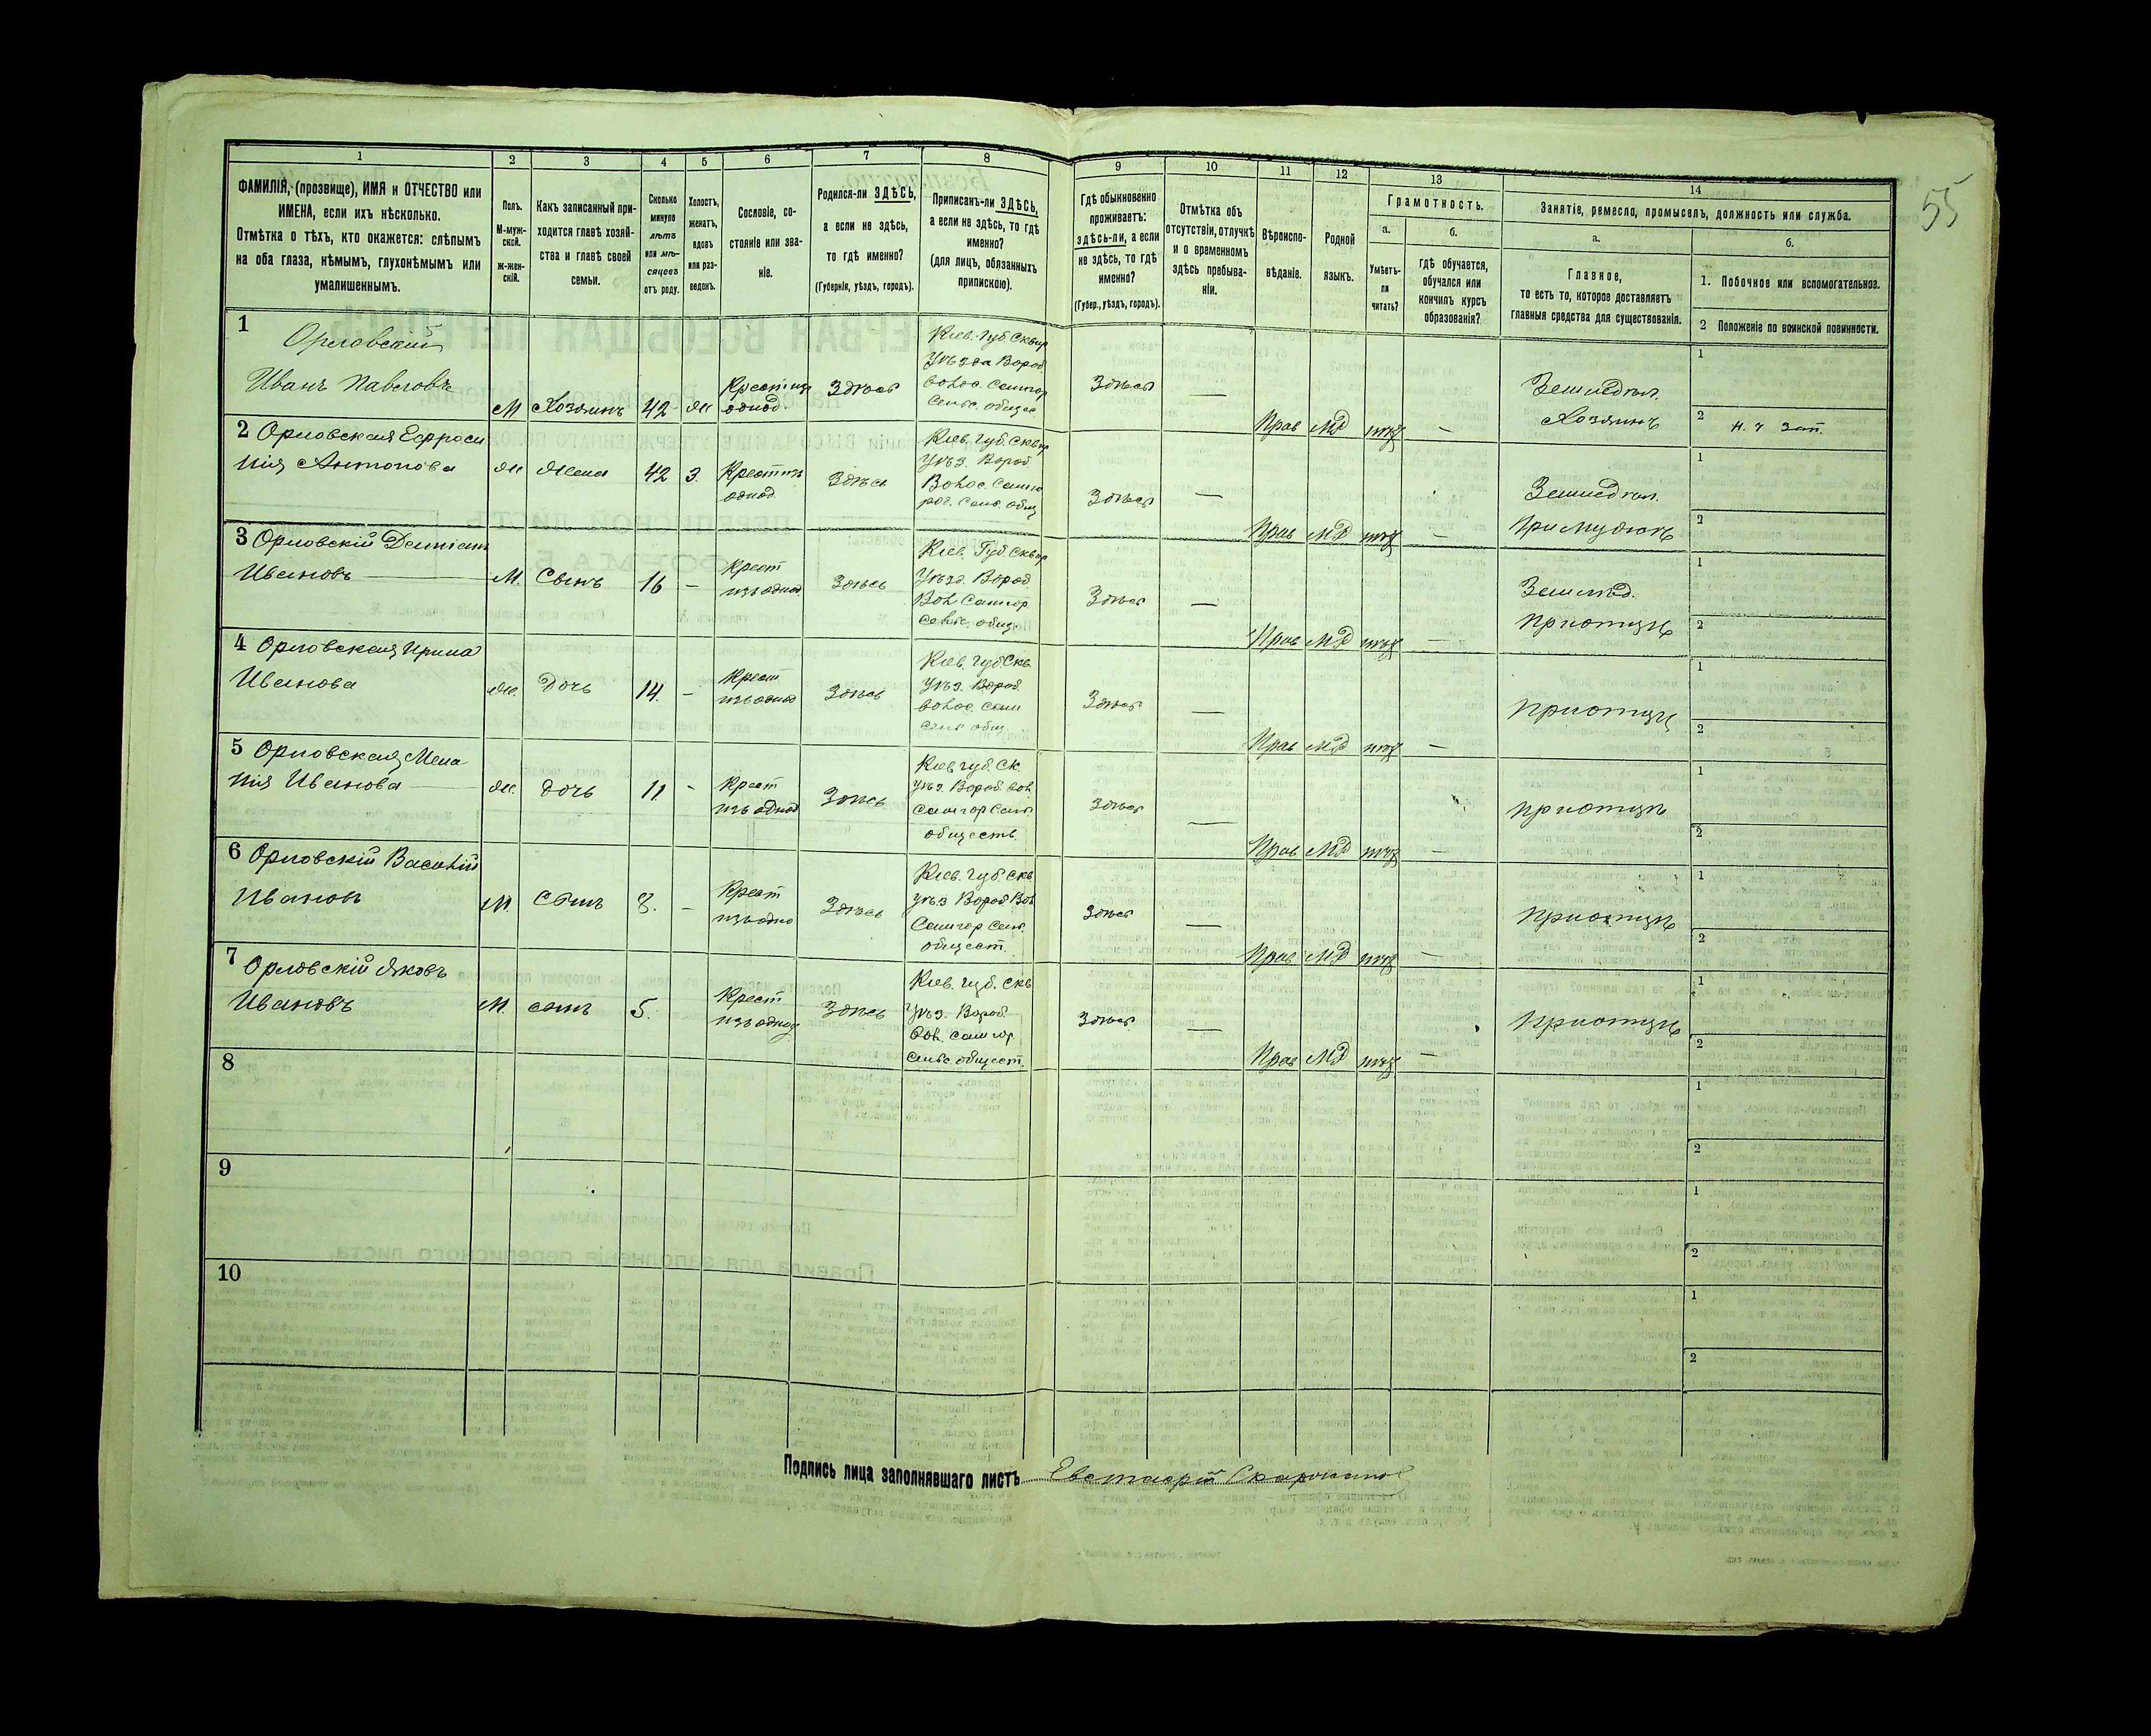 55
1 2 3 4 5 6 7 8 9 10 11 12 13 14
ФАМИЛІЯ, (прозвище), ИМЯ и ОТЧЕСТВО или
ИМЕНА, если ихъ нѣсколько.
Отмѣтка о тѣхъ, кто окажется: слѣпымъ
на оба глаза, нѣмымъ, глухонѣмымъ или
умалишеннымъ.
Полъ.
М-муж-
ской.
Ж-жен-
скій.
Какъ записанный при-
ходится главѣ хозяй-
ства и главѣ своей
семьи.
Сколько
минуло
лѣтъ
или мѣ-
сяцевъ
отъ роду.
Холостъ,
женатъ,
вдовъ
или раз-
веденъ.
Сословіе, со-
стояніе или зва-
ніе.
Родился-ли ЗДѢСЬ,
а если не здѣсь,
то гдѣ именно?
(Губернія, уѣздъ, городъ).
Приписанъ-ли ЗДѢСЬ,
а если не здѣсь, то гдѣ
именно?
(для лицъ, обязанныхъ
припискою).
Гдѣ обыкновенно
проживаетъ:
здѣсь-ли, а если
не здѣсь, то гдѣ
именно?
(Губер., уѣздъ, городъ).
Отмѣтка объ
отсутствіи, отлучкѣ
и о временномъ
здѣсь пребыва-
ніи.
Вѣроиспо-
вѣданіе.
Родной
языкъ.
Грамотность.
а.
Умѣетъ-
ли
читать?
б.
гдѣ обучается,
обучался или
кончилъ курсъ
образованія?
Занятіе, ремесло, промыселъ, должность или служба.
а.
Главное,
то есть то, которое доставляетъ
главныя средства для существованія.
б.
1. Побочное или вспомогательное.
2 Положеніе по воинской повинности.
1
Орловскій
Иванъ Павловъ
М Хозяинъ 42 Ж
Крест изъ
однод.
Здѣсь
Кіев. Губ. Сквир
Уѣзда Вород.
волос.
Сельс. общес
Здѣсь — Прав МР —
Земледѣл.
Хозяинъ
1
2 н. ч зап.
2 Орловская Ефроси
нія Антонова
Ж Жена 42 З.
Крест изъ
однод
Здѣсь
Кіев. Губ. Сквир
Уѣз. Вород
Волос.
Сельс. общ
Здѣсь — Прав МР —
Земледѣл.
При мужѣ
1
2
3 Орловскій Деміанъ
Ивановъ
М. Сынъ 16 —
Крест
изъ однод.
Здѣсь
Кіев. Губ. Сквир
Уѣзд. Вород
Вол
сельс. общ.
Здѣсь — Прав МР —
Землед.
При отцѣ
1
2
4 Орловская Ирина
Иванова
Ж. Дочь 14. —
Крест
изъ однод
Здѣсь
Кіев. Губ Скв.
Уѣз. Вород.
волос.
сельс общ.
Здѣсь — Прав МР —
При отцѣ
1
2
5 Орловская Мела
нія Иванова
Ж. Дочь 11. -
Крест
изъ однод
Здѣсь
Кіев губ. Ск.
уѣз. Вород вол
обществ.
Здѣсь — Прав МР —
При отцѣ
1
2
6 Орловскій Василій
Ивановъ
М. Сынъ 8. —
Крест
изъ одно
Здѣсь
Кіев. губ. Скв
уѣз Вород Вол
общест.
Здѣсь — Прав МР —
При отцѣ
1
2
7 Орловскій Яковъ
Ивановъ
М. сынъ 5.
Крест
изъ однод
Здѣсь
Кіев. губ. Скв
Уѣз. Вород
Вол.
сельс общест.
Здѣсь — Прав МР —
При отцѣ
1
2
8
1
2
9
1
2
10
1
2
Подпись лица заполнявшаго листъ Евстафій